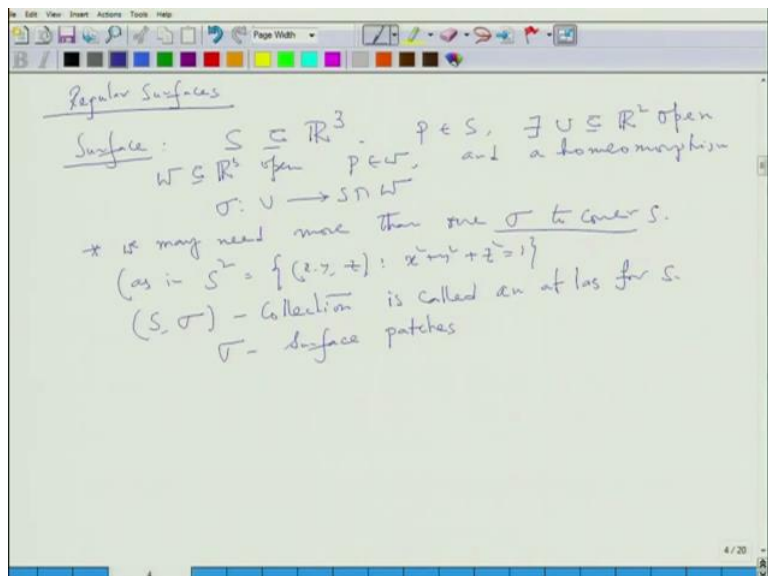 Edit View Insert Actions Tools Help
Page Width
Regular Surfaces
Surface: S ⊆ ℝ³. p ∈ S, ∃ U ⊆ ℝ² open
W ⊆ ℝ³ open p ∈ W, and a homeomorphism
σ: U → S ∩ W
* we may need more than one σ to cover S.
(as in S² = {(x, y, z) : x² + y² + z² = 1}
(S, σ) - Collection is called an atlas for S.
σ - Surface patches
4 / 20
4